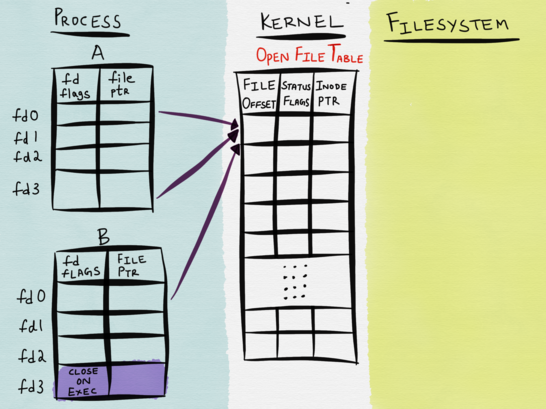 PROCESS
A
fd
flags
file
ptr
fd0
fd1
fd2
fd3
B
fd
FLAGS
FILE
PTR
fd0
fd1
fd2
fd3
CLOSE
ON
EXEC
KERNEL
OPEN FILE TABLE
FILE
OFFSET
STATUS
FLAGS
INODE
PTR
FILESYSTEM